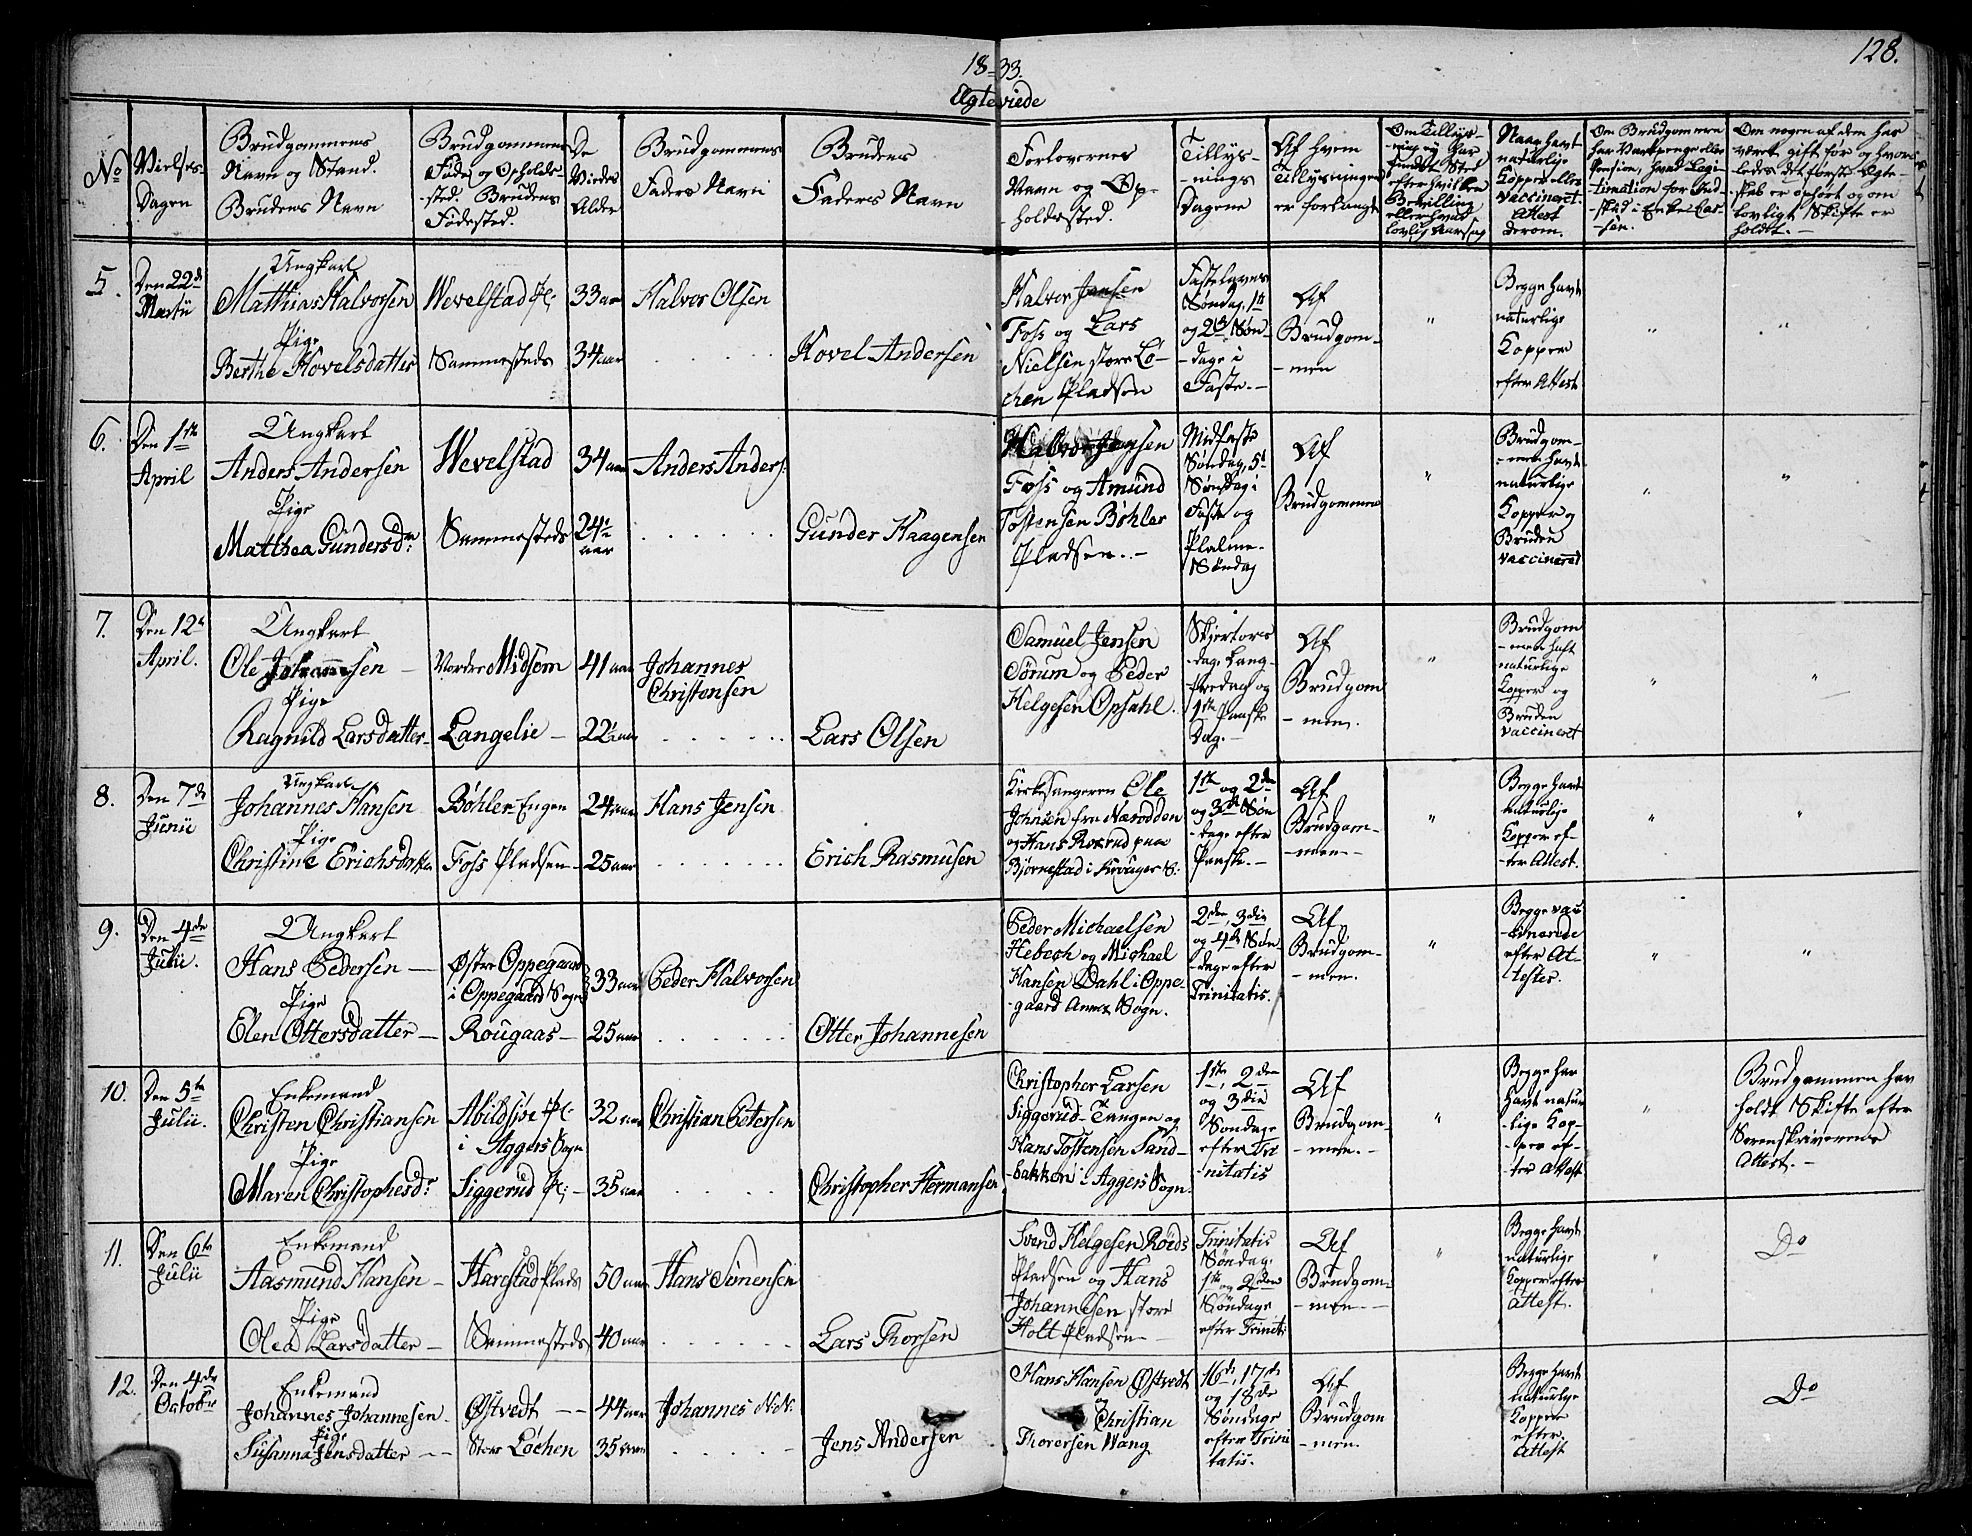 128.
18-33.
Egteviede
No
Vielses-
Dagen
Brudgommens
Navn og Stand.
Brudens Navn
Brudgommens
Føde og Opholds-
sted. Brudens
Fødested.
De
Viedes
Alder
Brudgommens
Faders Navn
Brudens
Faders Navn
Forlovernes
Navn og Op-
holdssted.
Tillys-
-nings
Dagene
Af hvem
Tillysningen
er forlangt
Om Tillys-
-ning ey har
fundet Sted
efter hvilken
Bevilling
eller hvad
lovlig Aarsag
Naar havt
naturlige
Kopper eller
vaccineret.
Attest
derom.
Om Brudgommen
har Vartpenge eller
Pension, hvad Legi-
-timation for Ind-
-skud i Enke Cas-
-sen.
Om nogen af dem har
været gift før og hvor-
ledes det første Egte-
-skab er ophørt og om
lovligt Skifte er
holdt. -
5.
Den 22de
Martii
Ungkarl
Mathias Halvorsen
Pige
Berthe Hovelsdatter
Wevelstad Pl:
Sammesteds
33 aar
34 aar
Halvor Olsen
Hovel Andersen
Halvor Jansen
Foss og Lars
Nielsen store Lø-
chen Pladsen
Fastelavns
Søndag, 1ste
og 2den Søn-
-dage i
Faste. -
Af
Brudgom-
-men
"
Begge havt
naturlige
Kopper
efter Attest
"
"
6.
Den 1ste
April
Ungkarl
Anders Andersen
Pige
Matthea Gundersdr
Wevelstad
Sammesteds
34 aar
24½
aar
Anders Anders:
Gunder Haagensen
Halvor Jansen
Foss og Amund
Tostensen Bøhler
Pladsen. -
Midfaste
Søndag, 5te
Søndag i
Faste og
Plalme-
Søndag
Af
Brudgommen
"
Brudgom-
-men havt
naturlige
Kopper og
Bruden
vaccinered
"
"
7.
Den 12te
April.
Ungkarl
Ole Johannesen -
Pige
Ragnild Larsdatter -
Nordre Midsem
Langelie -
41 aar
22½ aar
Johannes
Christensen
Lars Olsen
Samuel Jensen
Sørum og Peder
Helgesen Opsahl.
Skjertors-
-dag, Lang-
-fredag og
1ste Paaske
Dag. -
Af
Brudgom
-men.
"
Brudgom
-men haft
naturlige
Kopper og
Bruden
vaccineret
"
"
8.
Den 7de
Junii
Ungkarl
Johannes Hansen
Pige
Christine Erichsdatter
Bøhler-Engen
Foss Pladsen -
24 aar
25 aar
Hans Jensen
Erich Rasmusen
Kirkesangeren Ole
Johnsen fra Næsodden
og Hans Rosrud paa
Bjørnestad i Krouger S:
1ste og 2den
og 3de Søn
-dage efter
Paaske. -
Af
Brudgom-
-men -
"
Begge havt
naturlige
Kopper ef-
-ter Attest.
"
"
9.
Den 4de
Julii.
Ungkarl
Hans Pedersen -
Pige
Elen Ottersdatter -
Østre Oppegaard
i Oppegaard Sogn
Rougaas -
33 aar
25 aar
Peder Halvorsen
Otter Johannesen
Peder Michaelsen
Hebech og Michael
Hansen Dahl i Oppe-
-gaard Annex Sogn.
2den, 3die
og 4de Søn
-dage efter
Trinitatis.
Af
Brudgom-
-men.
"
Begge vac
cinerede
efter At-
tester.
"
"
10.
Den 5te
Julii.
Enkemand
Christen Christiansen
Pige
Maren Christophesdr
Abildsøe Pl:
i Aggers Sogn
Siggerud Pl: -
32 aar
35 aar
Christian Petersen
Christopher Hermansen
Christopher Larsen
Siggerud-Tangen og
Hans Tostensen Sand-
-bakken i Aggers Sogn.
1ste, 2den
og 3die
Søndage
efter Tri
-nitatis
Af
Brudgom-
-men. -
"
Begge har
havt natur
-lige Kop-
-per ef-
-ter Attest
"
Brudgommen har
holdt Skifte efter
Sorenskriverens
Attest. -
11.
Den 6te
Julii
Enkemand
Aasmund Hansen -
Pige
Olea Larsdatter -
Harestad Plads
Sammesteds
50 aar
40 aar
Hans Simensen
Lars Thorsen
Svend Helgesen Røids
Pladsen og Hans
Johannesen store
Holt Pladsen -
Trinitatis
Søndag,
1ste og 2den
Søndage
efter Triniti
Af
Brudgom-
-men -
"
Begge havt
naturlige
Kopper efter
Attest.
"
Do
12.
Den 4de
Octobr
Enkemand
Johannes Johannesen -
Pige
Susanna Jensdatter -
Østvedt -
Store Løchen
44 aar
35 aar
Johannes N:N:
Jens Andersen
Hans Hansen Østvedt
Christian
Thorersen Wang
16de, 17de
og 18de
Søndage
efter Trini
tatis.
Af
Brudgom
-men.
Begge havt
naturlige
Kopper
efter
Attest
Do